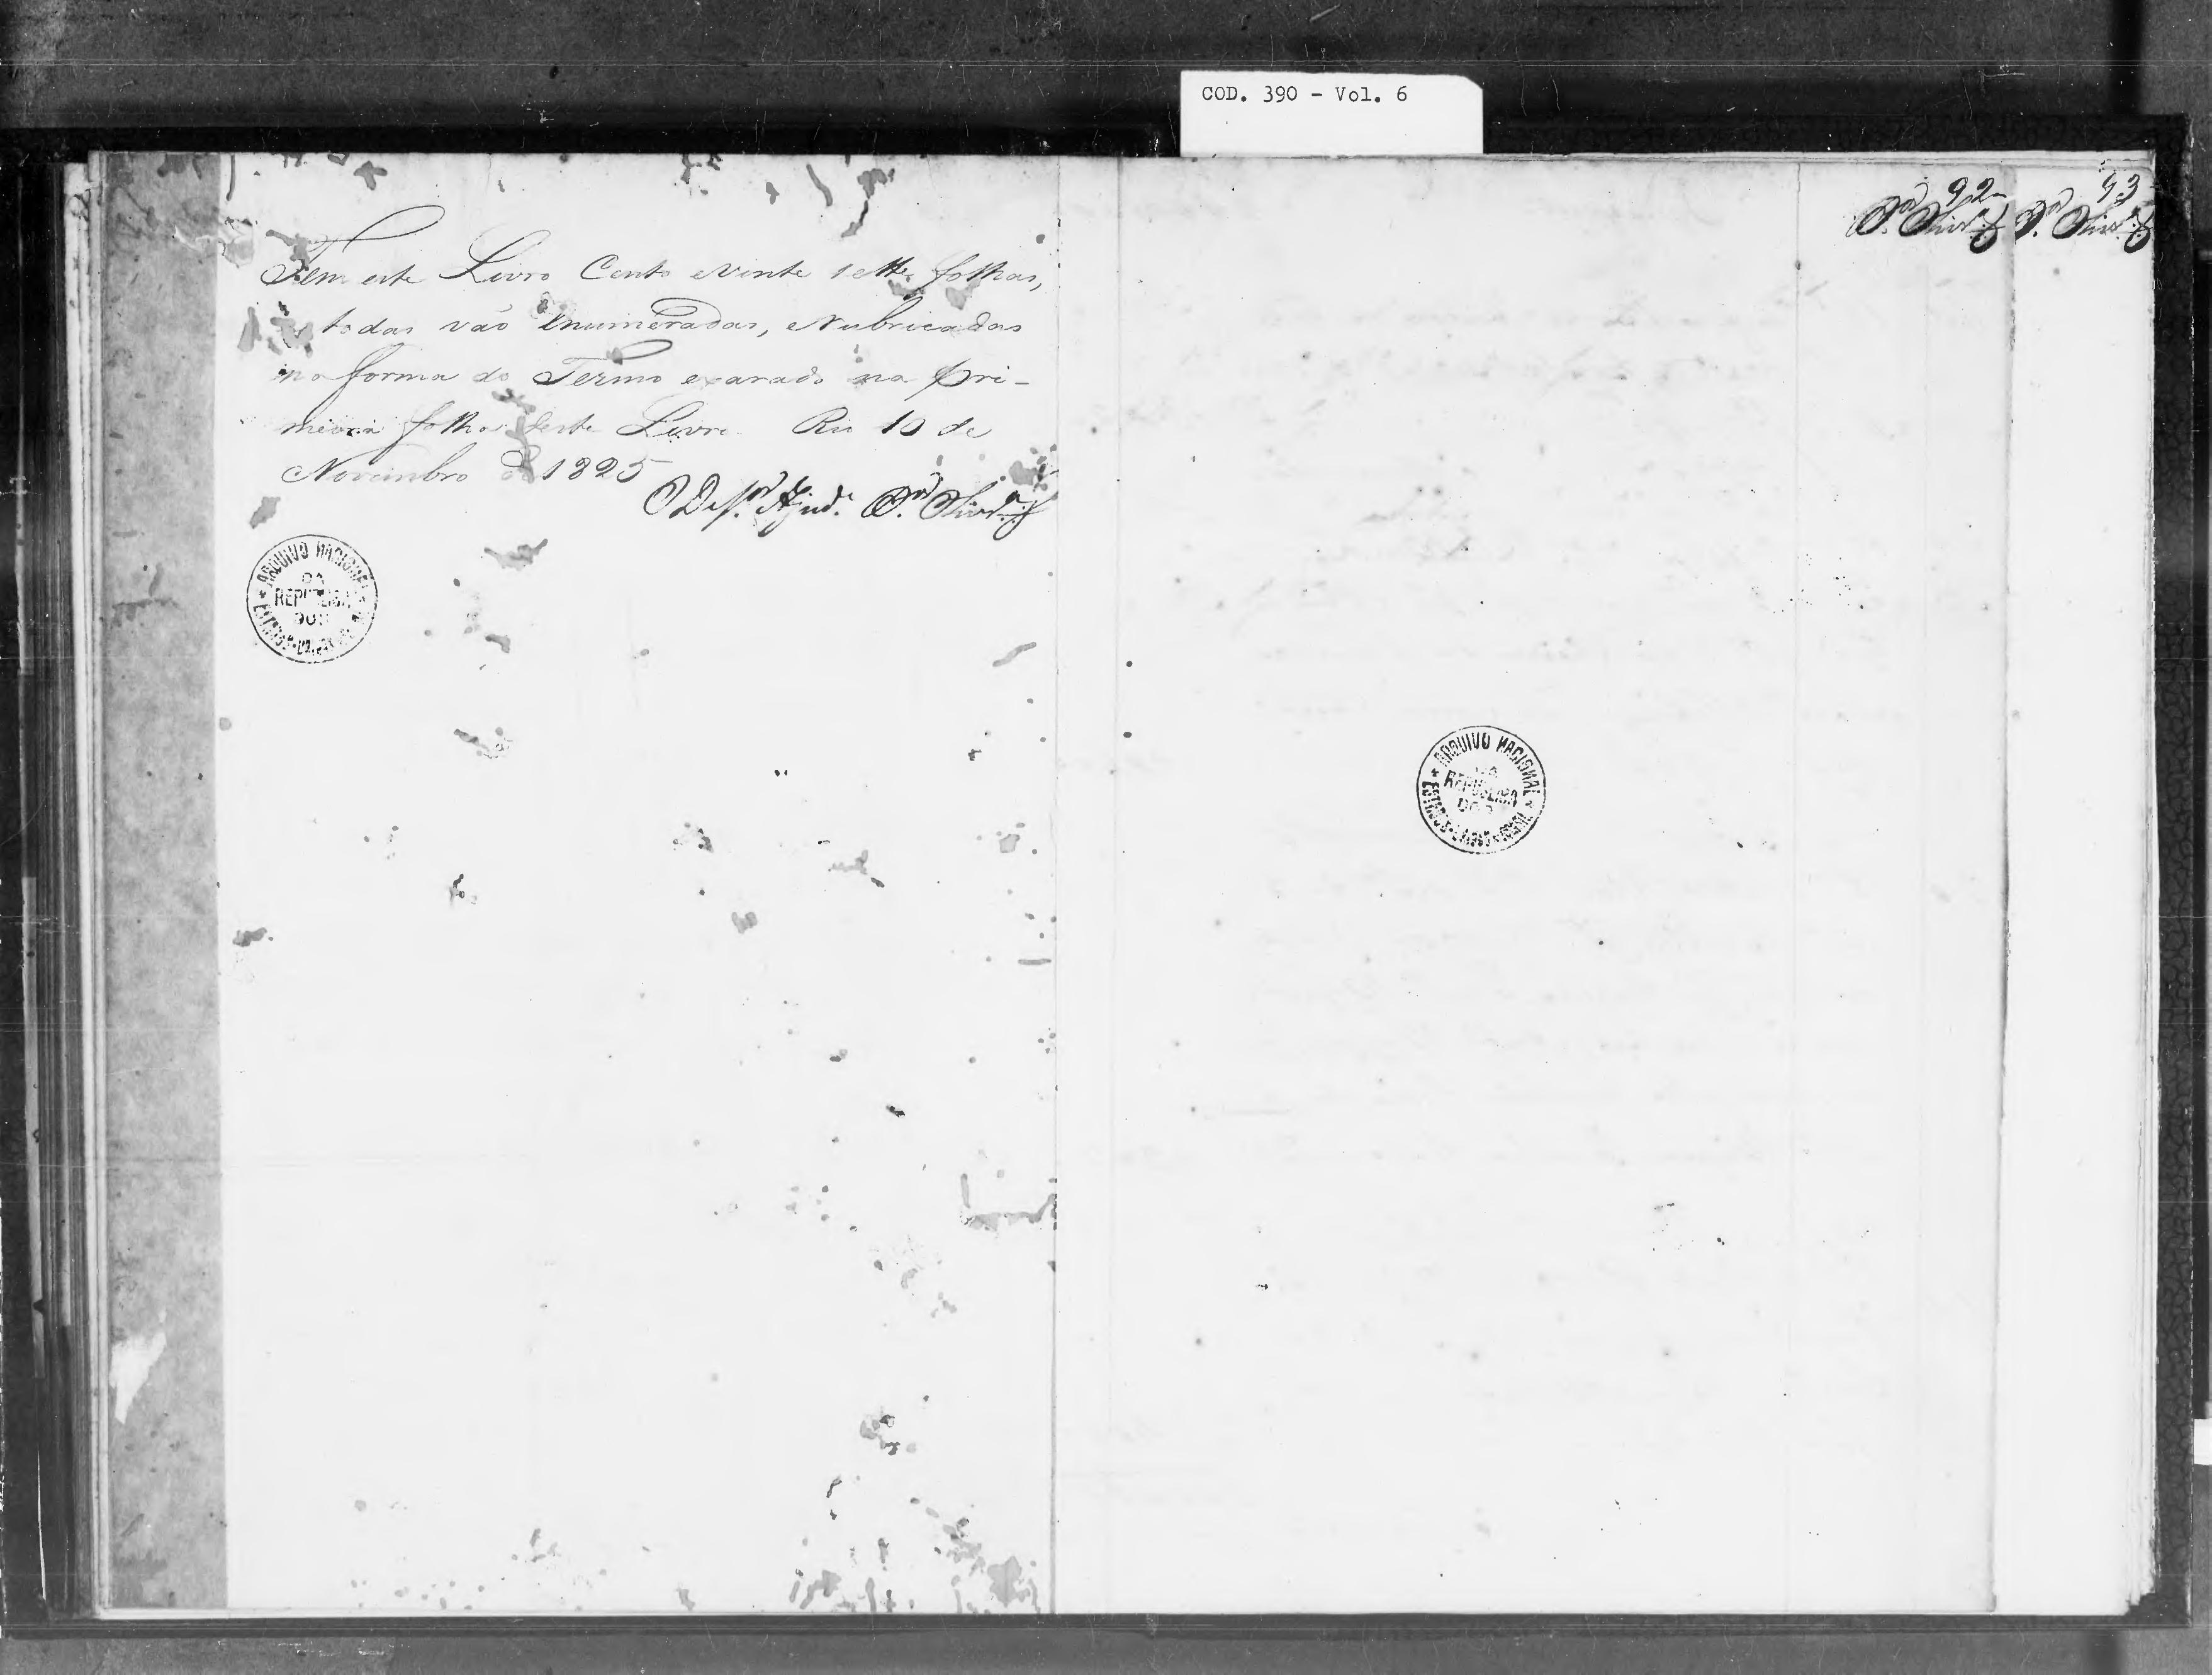 COD. 390 - Vol. 6
Tem este Livro Cento e vinte sette folhas,
todas vão enumeradas, e Rubricadas
na forma do Termo exarado na pri-
meira folha deste Livro. Rio 10 de
Novembro de 1825
O Des.or Ajud.e P.or Oliv.ra
ARQUIVO NACIONAL
DA
REPUBLICA
DOS
ESTADOS UNIDOS
92
P.or Oliv.ra
93
P.or Oliv.ra
ARQUIVO NACIONAL
DA
REPUBLICA
DOS
ESTADOS UNIDOS BRASIL